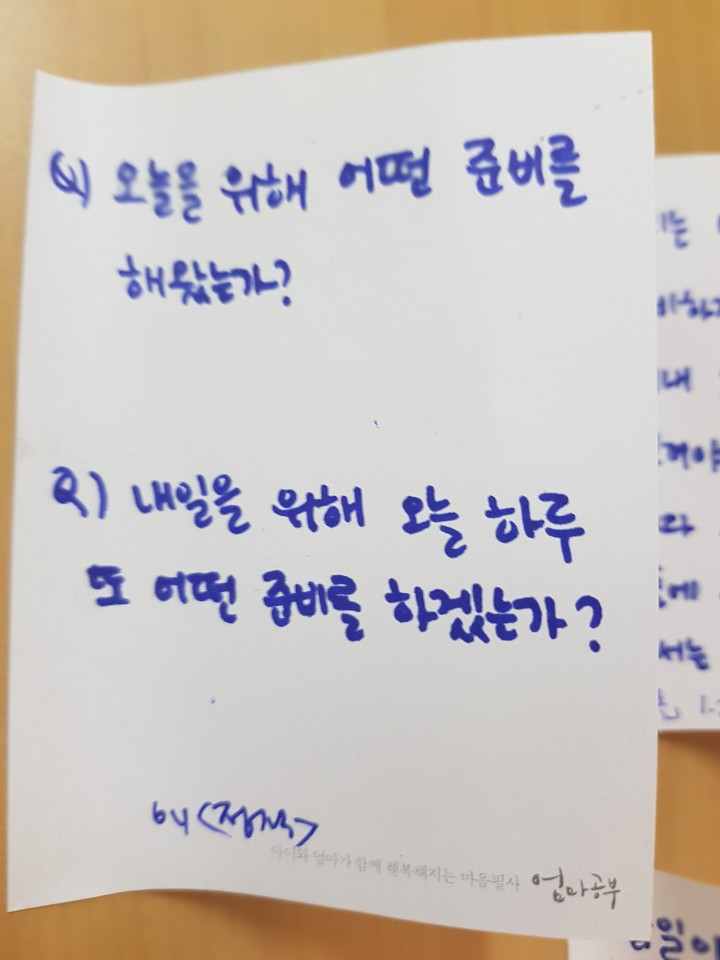 Q) 오늘을 위해 어떤 준비를
해왔는가?
Q) 내일을 위해 오늘 하루
또 어떤 준비를 하겠는가?
by
아이와 엄마가 함께 행복해지는 마음필사 엄마공부